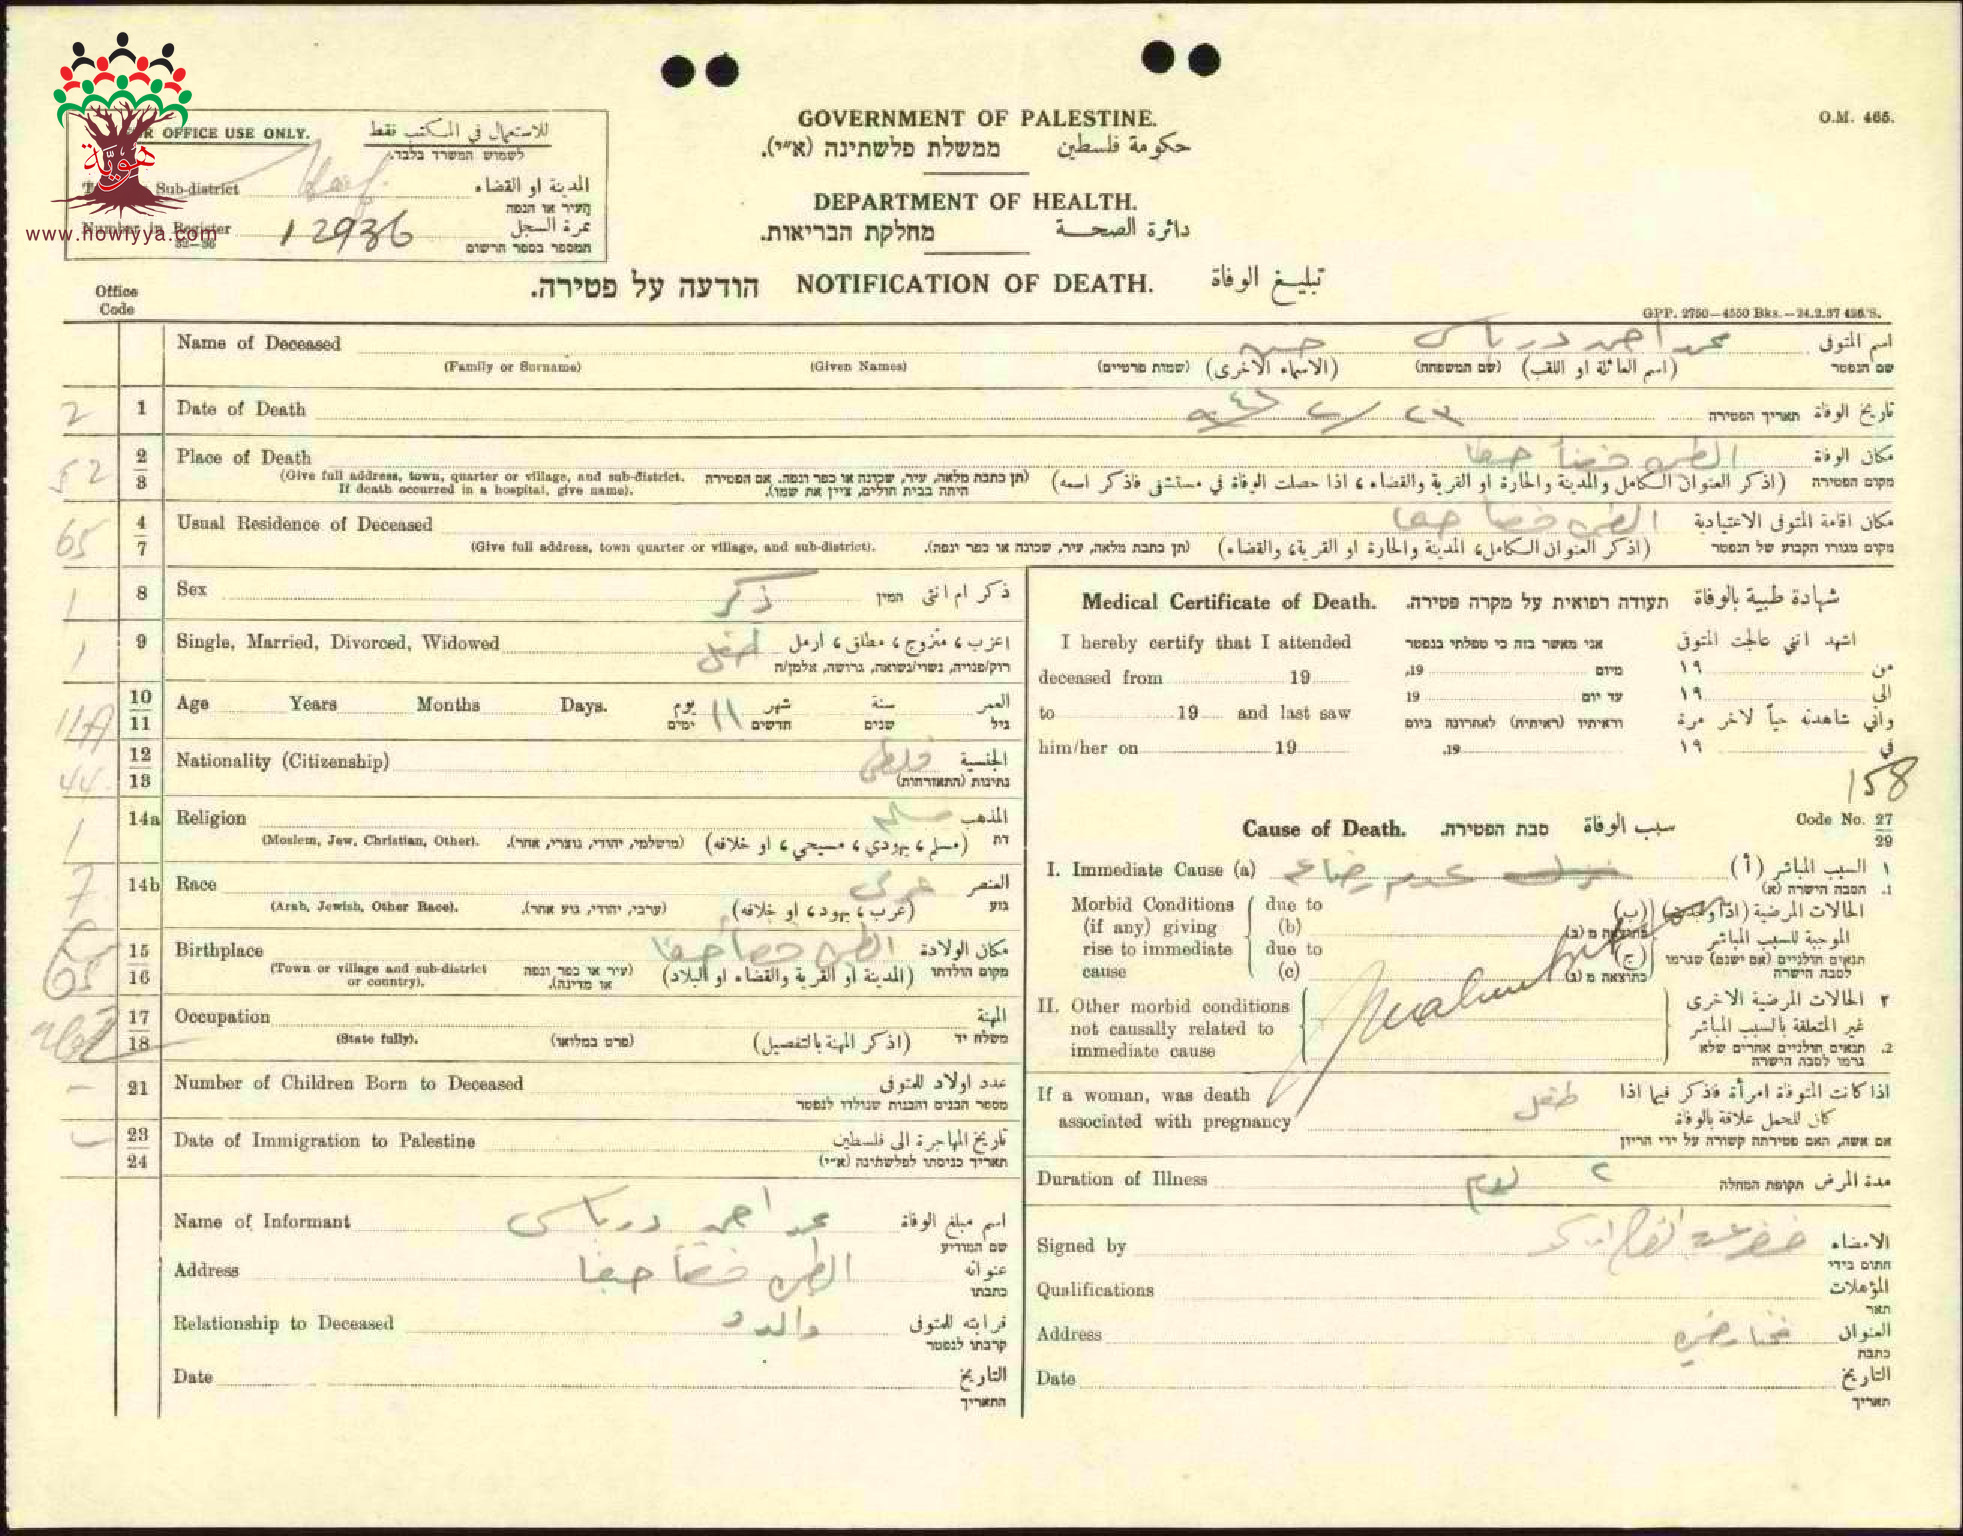 هوية
www.howiyya.com
FOR OFFICE USE ONLY. للاستعمال في المكتب فقط
לשמוש המשרד בלבד.
Sub-district المدينة او القضاء
העיר או הנפה
Number in Register 12936 نمرة السجل
32—36 המספר בספר הרשום
GOVERNMENT OF PALESTINE.
ממשלת פלשתינה (א״י). حكومة فلسطين
DEPARTMENT OF HEALTH.
מחלקת הבריאות. دائرة الصحة
O.M. 465.
הודעה על פטירה. NOTIFICATION OF DEATH. تبليغ الوفاة
Office
Code
GPP. 2750—4550 Bks.—24.2.37 426.'S.
Name of Deceased محمد احمد درباس اسم المتوفى
(Family or Surname) (Given Names) (שמות פרטיים) (الاسماء الاخرى) (שם המשפחה) (اسم العائلة او اللقب) שם הנפטר
2 1 Date of Death תאריך הפטירה تاريخ الوفاة
52 2 Place of Death الطيره قضاء حيفا مكان الوفاة
3 (Give full address, town, quarter or village, and sub-district. If death occurred in a hospital, give name). (תן כתבת מלאה, עיר, שכונה או כפר ונפה. אם הפטירה היתה בבית חולים, ציין את שמו). (اذكر العنوان الكامل والمدينة والحارة او القرية والقضاء، اذا حصلت الوفاة في مستشفى فاذكر اسمه) מקום הפטירה
65 4 Usual Residence of Deceased الطيره قضاء حيفا مكان اقامة المتوفى الاعتيادية
7 (Give full address, town quarter or village, and sub-district). (תן כתבת מלאה, עיר, שכונה או כפר ונפה). (اذكر العنوان الكامل، المدينة والحارة او القرية، والقضاء) מקום מגורו הקבוע של הנפטר
1 8 Sex ذكر המין ذكر ام انثى
1 9 Single, Married, Divorced, Widowed طفل اعزب، متزوج، مطلق، ارمل
רוק/פנויה, נשוי/נשואה, גרושה, אלמן/ה
11A 10 Age Years Months Days. يوم ١١ شهر سنة العمر
11 ימים חדשים שנים גיל
44 12 Nationality (Citizenship) فلسطيني الجنسية
13 נתינות (התאזרחות)
1 14a Religion مسلم المذهب
(Moslem, Jew, Christian, Other). (מושלמי, יהודי, נוצרי, אחר). (مسلم، يهودي، مسيحي، او خلافه) דת
7 14b Race عربي العنصر
(Arab, Jewish, Other Race). (ערבי, יהודי, גזע אחר). (عرب، يهود، او خلافه) גזע
65 15 Birthplace الطيره قضاء حيفا مكان الولادة
16 (Town or village and sub-district or country). (עיר או כפר ונפה או מדינה). (المدينة او القرية والقضاء او البلاد) מקום הולדתו
17 Occupation المهنة
18 (State fully). (פרט במלואו) (اذكر المهنة بالتفصيل) משלח יד
21 Number of Children Born to Deceased عدد اولاد للمتوفى
מספר הבנים והבנות שנולדו לנפטר
23 Date of Immigration to Palestine تاريخ المهاجرة الى فلسطين
24 תאריך כניסתו לפלשתינה (א״י)
Name of Informant محمد احمد درباس اسم مبلغ الوفاة
שם המודיע
Address الطيره قضاء حيفا عنوانه
כתבתו
Relationship to Deceased والده قرابته للمتوفى
קרבתו לנפטר
Date التاريخ
התאריך
Medical Certificate of Death. תעודה רפואית על מקרה פטירה. شهادة طبية بالوفاة
I hereby certify that I attended אני מאשר בזה כי טפלתי בנפטר اشهد انني عالجت المتوفى
deceased from 19 19, מיום ١٩ من
to 19 and last saw 19 עד יום ١٩ الى
וראיתיו (ראיתיה) לאחרונה ביום واني شاهدته حياً لآخر مرة
him/her on 19 19. ١٩ في
158
Cause of Death. סבת הפטירה. سبب الوفاة Code No. 27
29
I. Immediate Cause (a) عدم رضاعه السبب المباشر (أ) ١
הסבה הישרה (א) 1.
Morbid Conditions due to الحالات المرضية (اذا وجدت) (ب)
(if any) giving (b) כתוצאה מ (ב) الموجبة للسبب المباشر
rise to immediate due to (ج) תנאים חולניים (אם ישנם) שגרמו
cause (c) כתוצאה מ (ג) לסבה הישרה
II. Other morbid conditions الحالات المرضية الاخرى ٢
not causally related to غير المتعلقة بالسبب المباشر
immediate cause תנאים חולניים אחרים שלא 2.
גרמו לסבה הישרה
If a woman, was death طفل اذا كانت المتوفاة امرأة فاذكر فيما اذا
associated with pregnancy كان للحمل علاقة بالوفاة
אם אשה, האם פטירתה קשורה על ידי הריון
Duration of Illness يوم ٢ תקופת המחלה مدة المرض
Signed by الامضاء
חתום בידי
Qualifications المؤهلات
תאר
Address العنوان
כתבת
Date التاريخ
תאריך